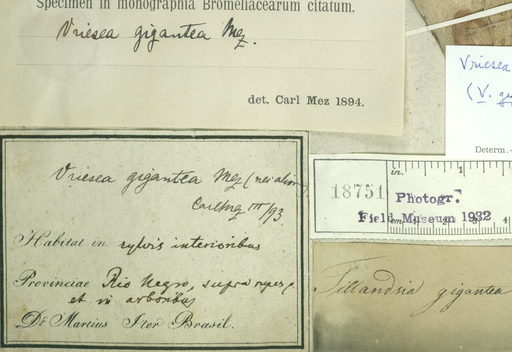 Specimen in monographia Bromeliacearum citatum.
Vriesea gigantea Mez.
det. Carl Mez 1894.
Vriesea
(V.
Determ.
Vriesea gigantea Mez (nei
Carl Mez III/93
Habitat in sylvis interioribus
Provinciae Rio Negro, supra rupes
et in arboribus
Dr Martius Iter Brasil.
in. 1
18751
Photogr.
Field Museum 1932
Tillandsia gigantea